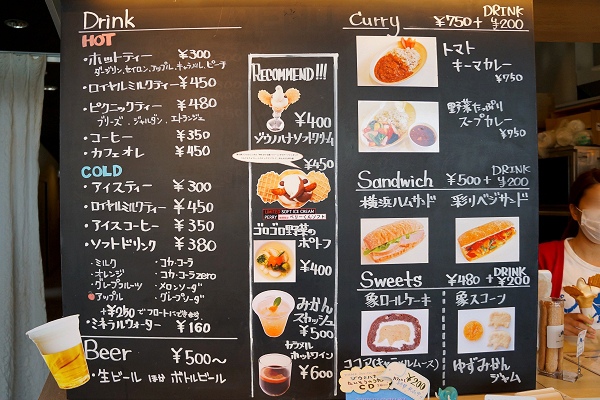 Drink
HOT
・ホットティー ¥300
ダージリン、セイロン、アップル、キャラメル、ピーチ
・ロイヤルミルクティー ¥450
・ピクニックティー ¥480
ブリーズ、ジャルダン、エトランジェ
・コーヒー ¥350
・カフェオレ ¥450
COLD
・アイスティー ¥300
・ロイヤルミルクティー ¥450
・アイスコーヒー ¥350
・ソフトドリンク ¥380
・ミルク ・コカ・コーラ
・オレンジ ・コカ・コーラzero
・グレープフルーツ ・メロンソーダ
・アップル ・グレープソーダ
+¥250でフロートできます
・ミネラルウォーター ¥160
Beer ¥500〜
・生ビール ほか ボトルビール
RECOMMEND!!!
¥400
ゾウノハナソフトクリーム
¥450
LIMITED SOFT ICE CREAM
ゴロゴロ野菜の
ポトフ
¥400
みかん
スカッシュ
¥500
キャラメル
ホットワイン
¥600
Curry ¥750+ DRINK ¥200
トマト
キーマカレー
¥750
野菜たっぷり
スープカレー
¥950
Sandwich ¥500+ DRINK ¥200
横浜ハムサンド 彩りベジサンド
Sweets ¥480+ DRINK ¥200
象ロールケーキ 象スコーン
ココア(キャラメルムース) ゆずみかん
ジャム
ゾウノハナ
¥200
CD